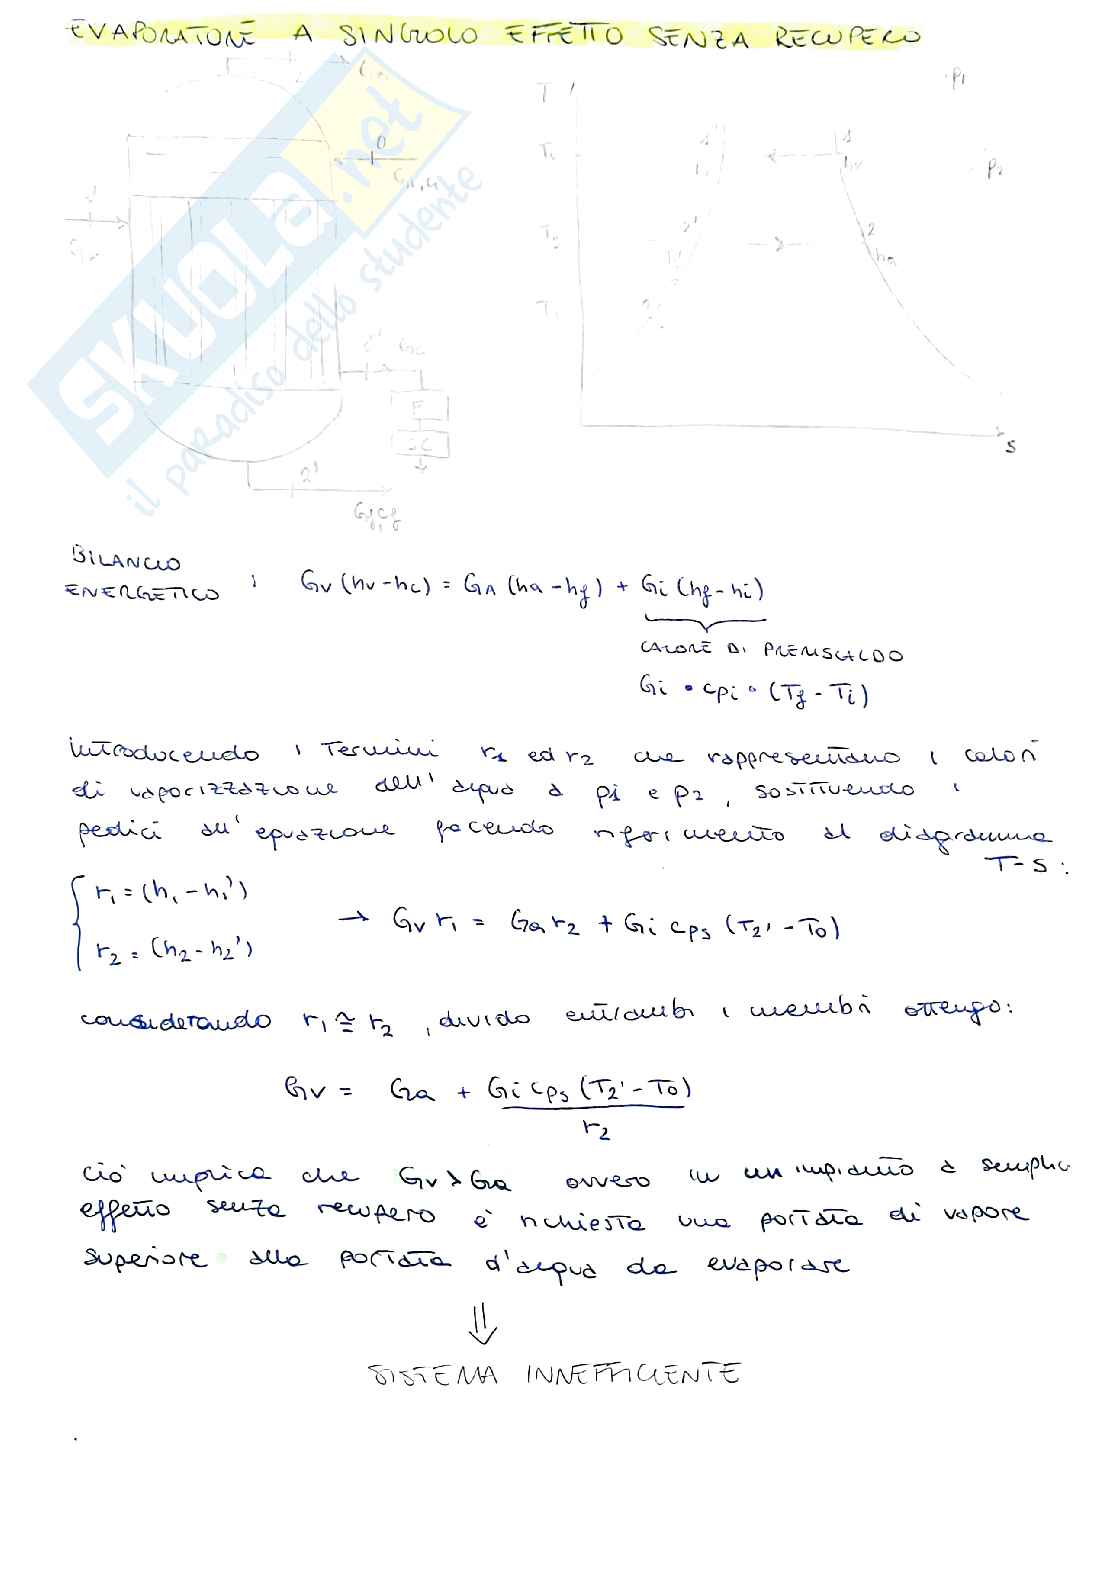 EVAPORATORE A SINGOLO EFFETTO SENZA RECUPERO
SKUOLA.net
il paradiso dello studente
T
p1
0
1'
1
hv
p2
2'
2
ha
T2
2'
F
SC
S
2'
Gf, cf
BILANCIO
ENERGETICO : Gv (hv - hc) = GA (ha - hf) + Gi (hf - hi)
CALORE DI PRERISCALDO
Gi • cpi • (Tf - Ti)
introducendo i termini r1 ed r2 che rappresentano i calori
di vaporizzazione dell'acqua a p1 e p2, sostituendo i
pedici all'equazione facendo riferimento al diagramma
T-S:
r1 = (h1 - h1')
→ Gv r1 = Ga r2 + Gi cps (T2' - T0)
r2 = (h2 - h2')
considerando r1 ≅ r2, divido entrambi i membri ottengo:
Gv = Ga + Gi cps (T2' - T0)
r2
ciò implica che Gv > Ga ovvero in un impianto a semplice
effetto senza recupero è richiesta una portata di vapore
superiore alla portata d'acqua da evaporare
⇓
SISTEMA INNEFFICIENTE